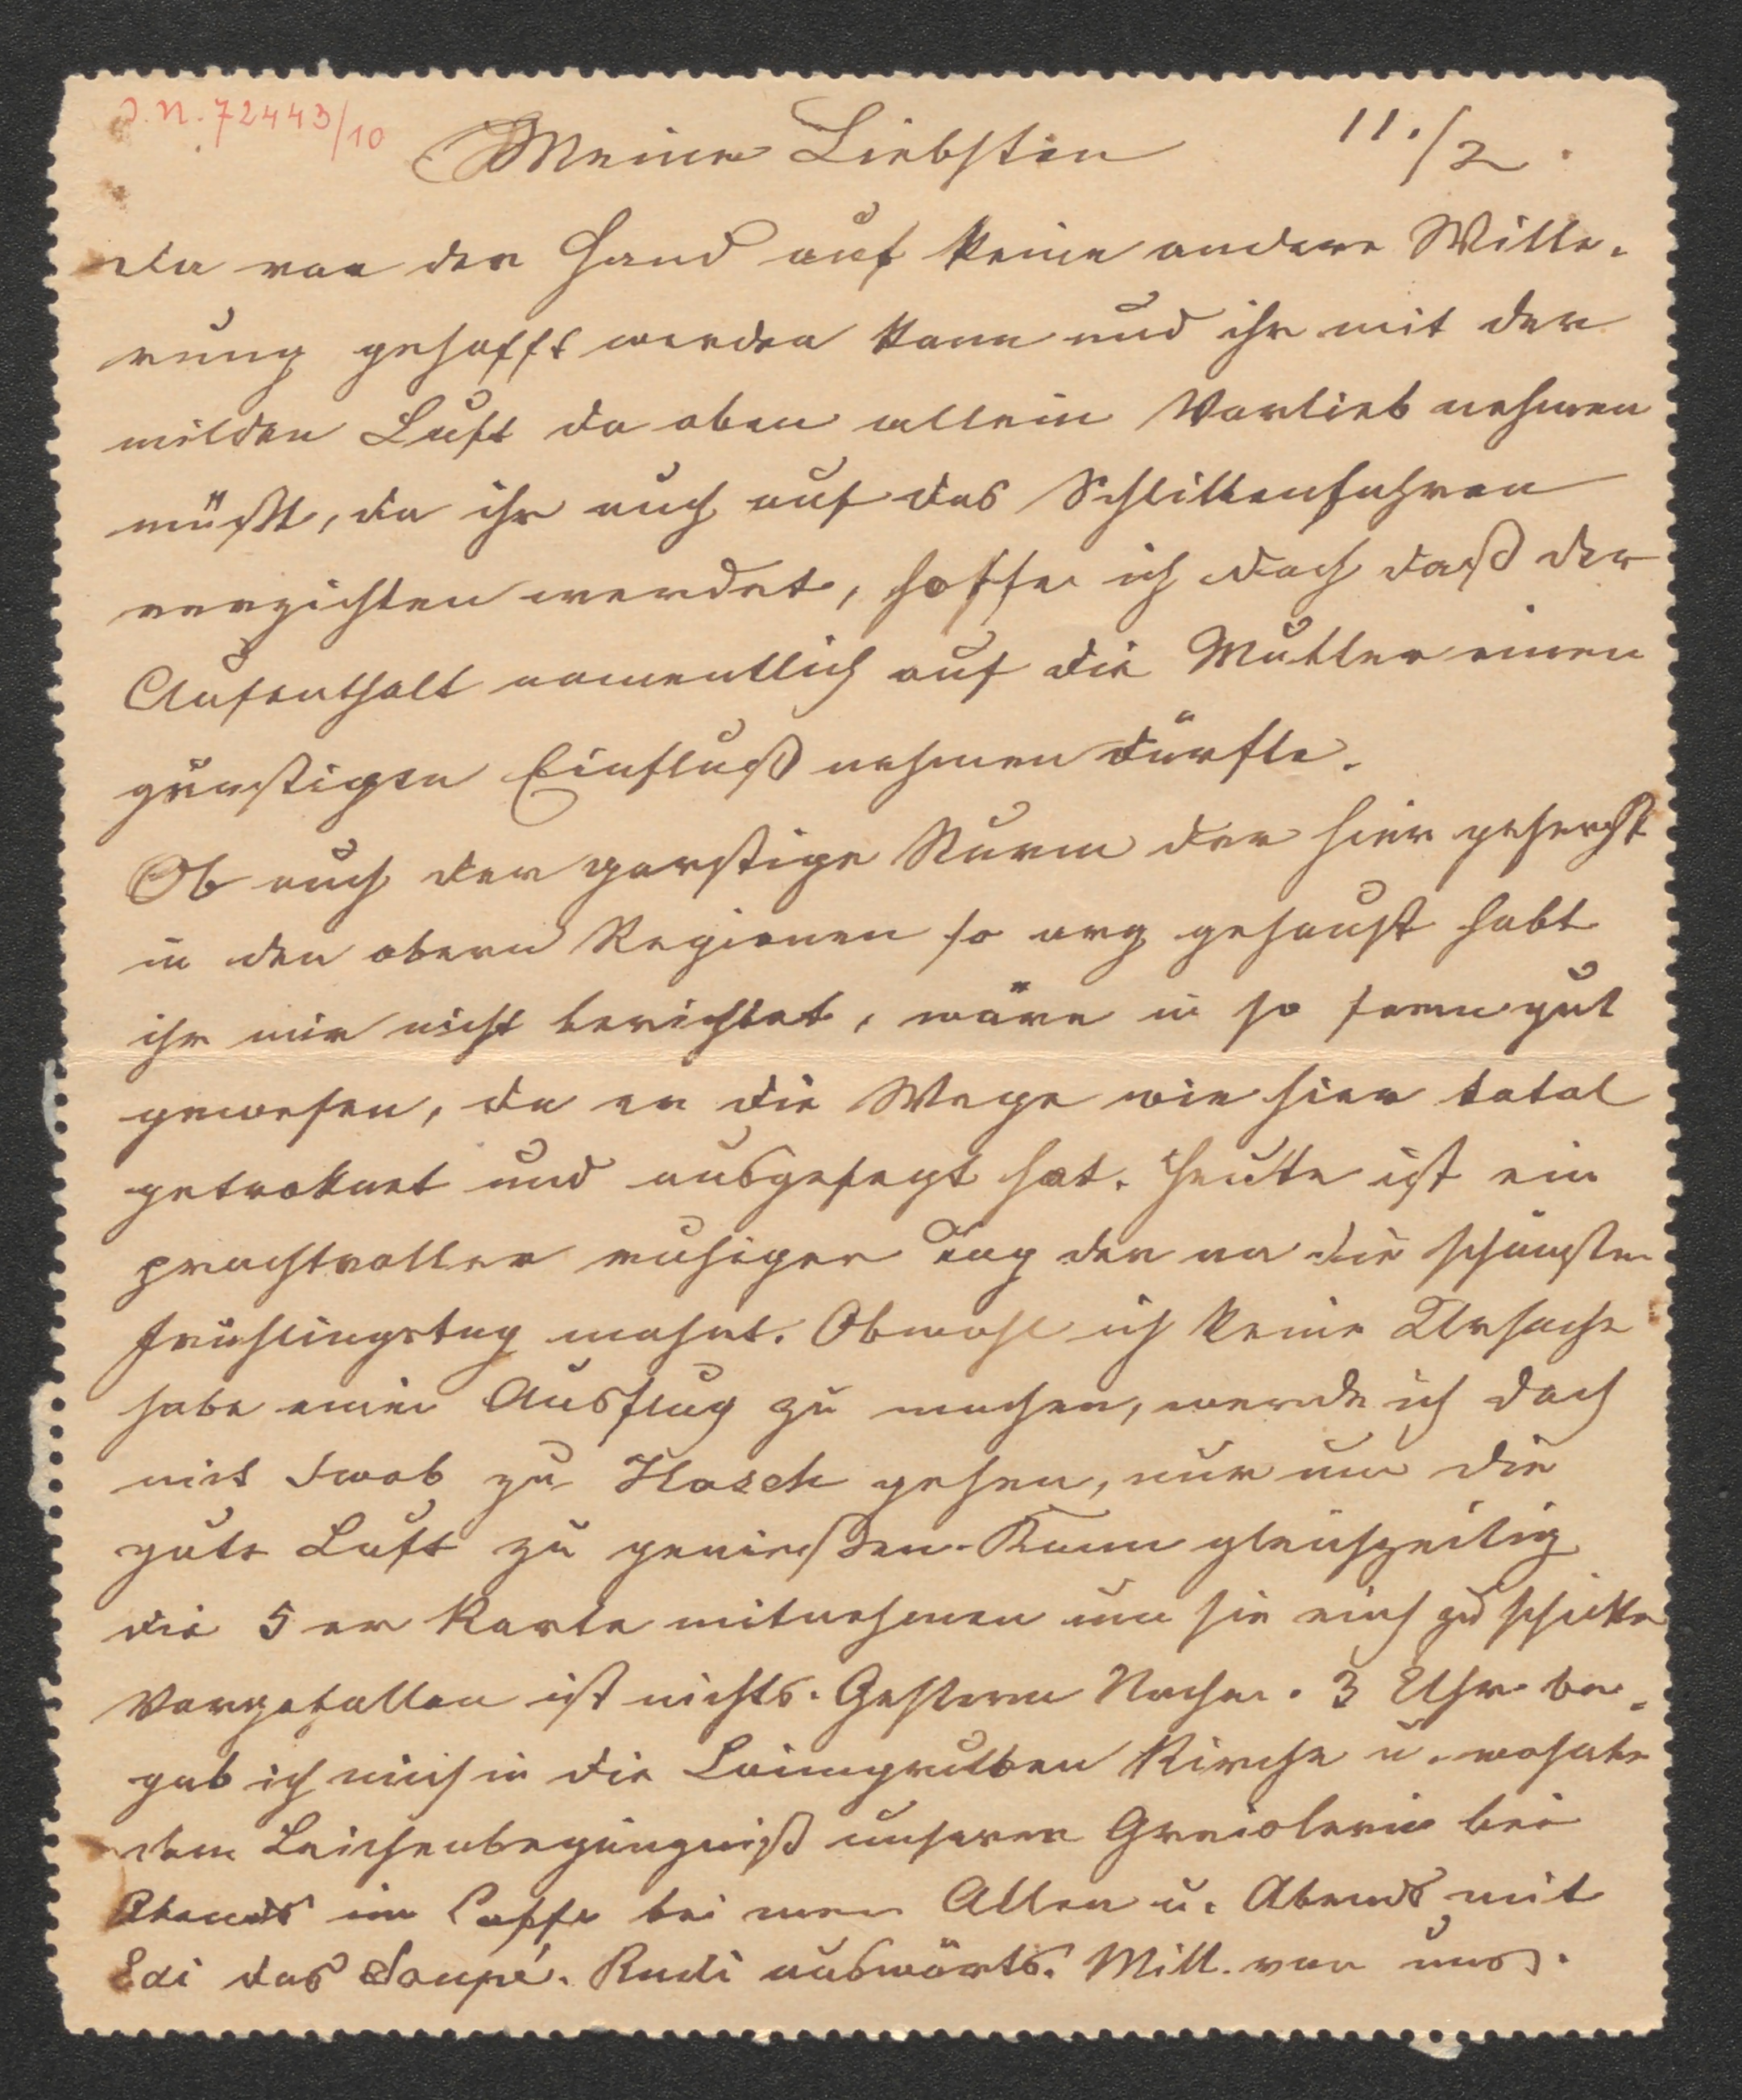 J.N. 72443/10
Meine Liebsten 11./2.
da vor der Hand auf keine andere Witte-
rung gehofft werden kann und ihr mit der
milden Luft da oben allein Vorlieb nehmen
müßt, da ihr auch auf das Schlittenfahren
verzichten werdet, hoffe ich doch daß der
Aufenthalt namentlich auf die Mutter einen
günstigen Einfluß nehmen dürfte.
Ob auch der garstige Sturm der hier geherscht
in den obern Regionen so arg gehaust habt
ihr mir nicht berichtet, wäre in so fern gut
gewesen, da er die Wege wie hier total
getroknet und ausgefegt hat. Heute ist ein
prachtvoller ruhiger Tag der an die schönsten
Frühlingstag mahnt. Obwohl ich keine Ursache
habe einen Ausflug zu machen, werde ich doch
mit zu gehen, nur um die
gute Luft zu genießen. Kann gleichzeitig
die 5 er Karte mitnehmen um sie euch zu schikken
Vorgefallen ist nichts. Gestern Nachm. 3 Uhr be-
gab ich mich in die Laimgruben Kirche u. wohnte
dem Leichenbegängniß unserer Greislerin bei
Abends im Caffe bei den Alten u. Abends mit
Edi das Soupé. Rudi auswärts. Mitt. von uns.